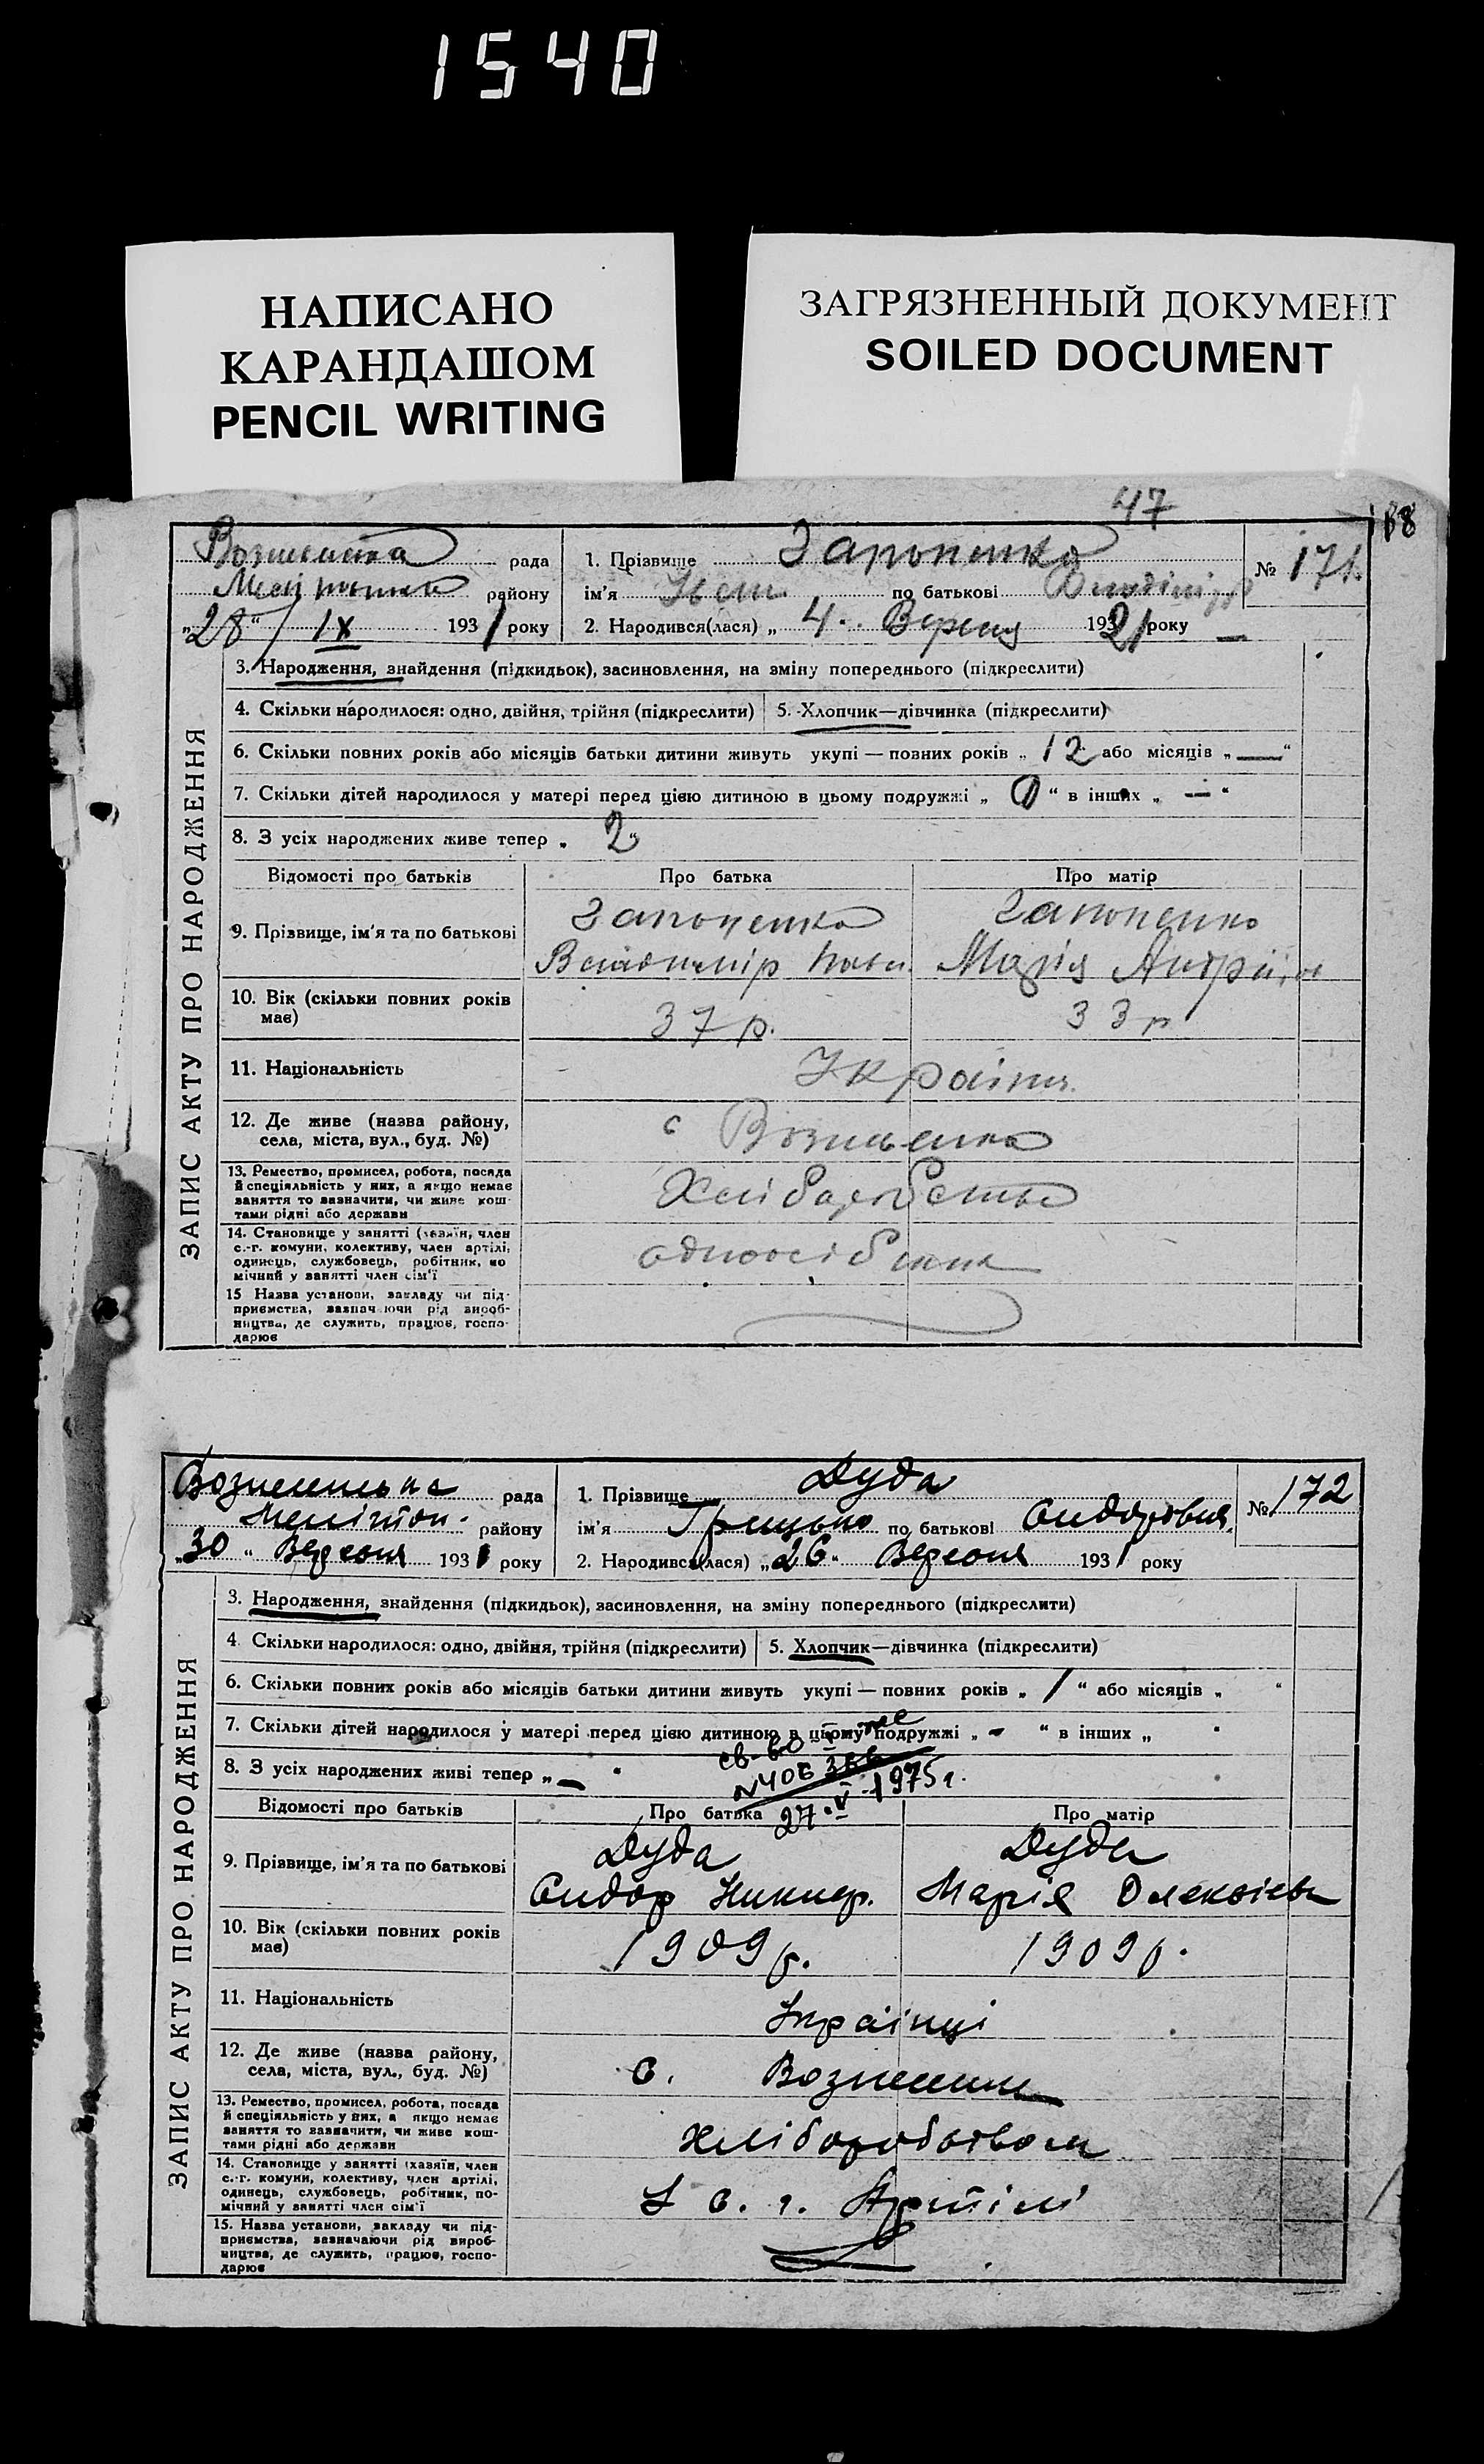 1540
НАПИСАНО
КАРАНДАШОМ
PENCIL WRITING
ЗАГРЯЗНЕННЫЙ ДОКУМЕНТ
SOILED DOCUMENT
47
рада
1. Прізвище
№ 171.
району
ім'я
по батькові
„28“ / IX 1931 року
2. Народився(лася) „ 4. року
3. Народження, знайдення (підкидьок), засиновлення, на зміну попереднього (підкреслити)
4. Скільки народилося: одно, двійня, трійня (підкреслити) 5. Хлопчик—дівчинка (підкреслити)
6. Скільки повних років або місяців батьки дитини живуть укупі — повних років „ 12 або місяців „ — “
7. Скільки дітей народилося у матері перед цією дитиною в цьому подружжі „ “ в інших „ — “
8. З усіх народжених живе тепер „ 2 “
ЗАПИС АКТУ ПРО НАРОДЖЕННЯ
Відомості про батьків
Про батька
Про матір
9. Прізвище, ім'я та по батькові
Марія
10. Вік (скільки повних років
має)
37 р.
33 р
11. Національність
12. Де живе (назва району,
села, міста, вул., буд. №)
с
13. Ремество, промисел, робота, посада
й спеціяльність у них, а якщо немає
заняття то зазначити, чи живе кош-
тами рідні або держави
14. Становище у занятті (хазяїн, член
с.-г. комуни, колективу, член артілі,
одинець, службовець, робітник, по
мічний у занятті член сім'ї
15 Назва установи, закладу чи під-
приємства, зазначаючи рід вироб-
ництва, де служить, працює, госпо-
дарює
рада
1. Прізвище Дуда
№ 172
Мелітоп. району
ім'я Грицько по батькові
„30“ Вересня 1931 року
2. Народився(лася) „26“ Вересня 1931 року
3. Народження, знайдення (підкидьок), засиновлення, на зміну попереднього (підкреслити)
4. Скільки народилося: одно, двійня, трійня (підкреслити) 5. Хлопчик—дівчинка (підкреслити)
6. Скільки повних років або місяців батьки дитини живуть укупі — повних років „ 1 “ або місяців „ “
7. Скільки дітей народилося у матері перед цією дитиною в цьому подружжі „ - “ в інших „ “
8. З усіх народжених живі тепер „ — “
св-во
27.V 1975г.
ЗАПИС АКТУ ПРО НАРОДЖЕННЯ
Відомості про батьків
Про батька
Про матір
9. Прізвище, ім'я та по батькові
Дуда
Сидор Никиф.
Дуда
Марія Олексіевн
10. Вік (скільки повних років
має)
1909 р.
1909 р.
11. Національність
Українці
12. Де живе (назва району,
села, міста, вул., буд. №)
с.
13. Ремество, промисел, робота, посада
й спеціяльність у них, а якщо немає
заняття то зазначити, чи живе кош-
тами рідні або держави
хліборобством
14. Становище у занятті (хазяїн, член
с.-г. комуни, колективу, член артілі,
одинець, службовець, робітник, по-
мічний у занятті член сім'ї
У с. г. Артілі
15. Назва установи, закладу чи під-
приємства, зазначаючи рід вироб-
ництва, де служить, працює, госпо-
дарює